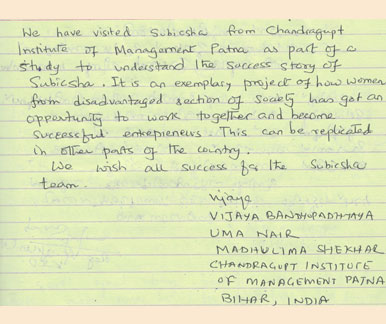 We have visited Subicsha from Chandragupt
Institute of Management, Patna as part of a
study to understand the success story of
Subicsha. It is an exemplary project of how women
from disadvantaged section of Society has got an
opportunity to work together and become
successful entrepreneurs. This can be replicated
in other parts of the country.
We wish all success for the Subicsha
team.
Vijaya
VIJAYA BANDHUPADHYAYA
UMA NAIR
MADHULIMA SHEKHAR
CHANDRAGUPT INSTITUTE
OF MANAGEMENT PATNA
BIHAR, INDIA